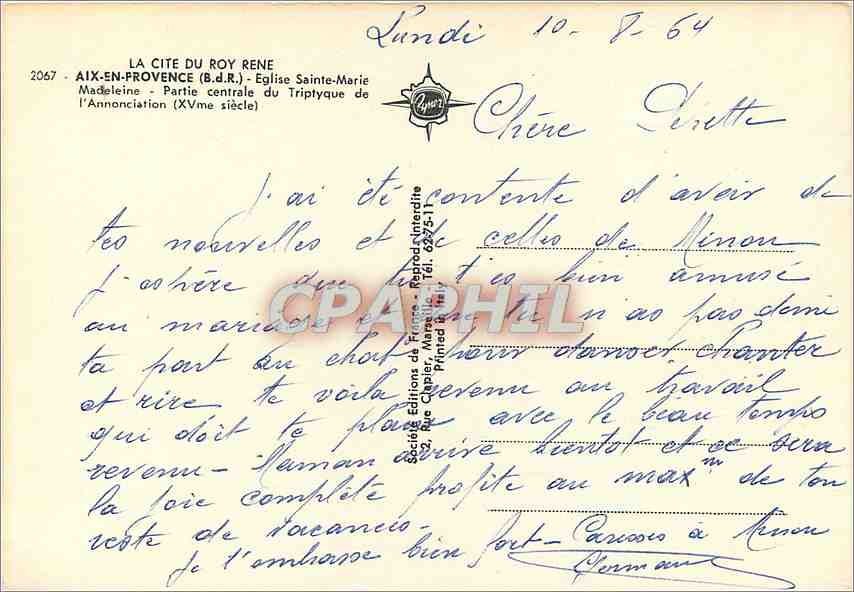 Lundi 10-8-64
LA CITE DU ROY RENE
2067 - AIX-EN-PROVENCE (B.d.R.) - Eglise Sainte-Marie
Madeleine - Partie centrale du Triptyque de
l'Annonciation (XVme siècle)
Chère
J'ai été contente d'avoir de
tes nouvelles et de celles de Minou
J'espère que tu t'es bien amusé
au mariage et que tu n'as pas donné
ta part au chat pour danser chanter
et rire te voilà revenu au travail
qui doit te plaire avec le beau temps
revenu - Maman arrive bientot et ce sera
la joie complète profite au maxm de ton
reste de vacances -
Je t'embrasse bien fort - Caresses à Minou
Société Editions de France - Reprod. interdite
2, Rue Clapier, Marseille - Tél. 62-75-11
Printed in Italy
CPAPHIL